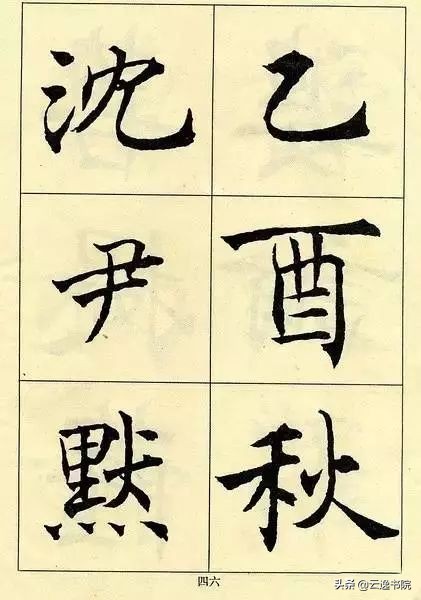 乙酉秋
沈尹默
四六
头条@云逸书院